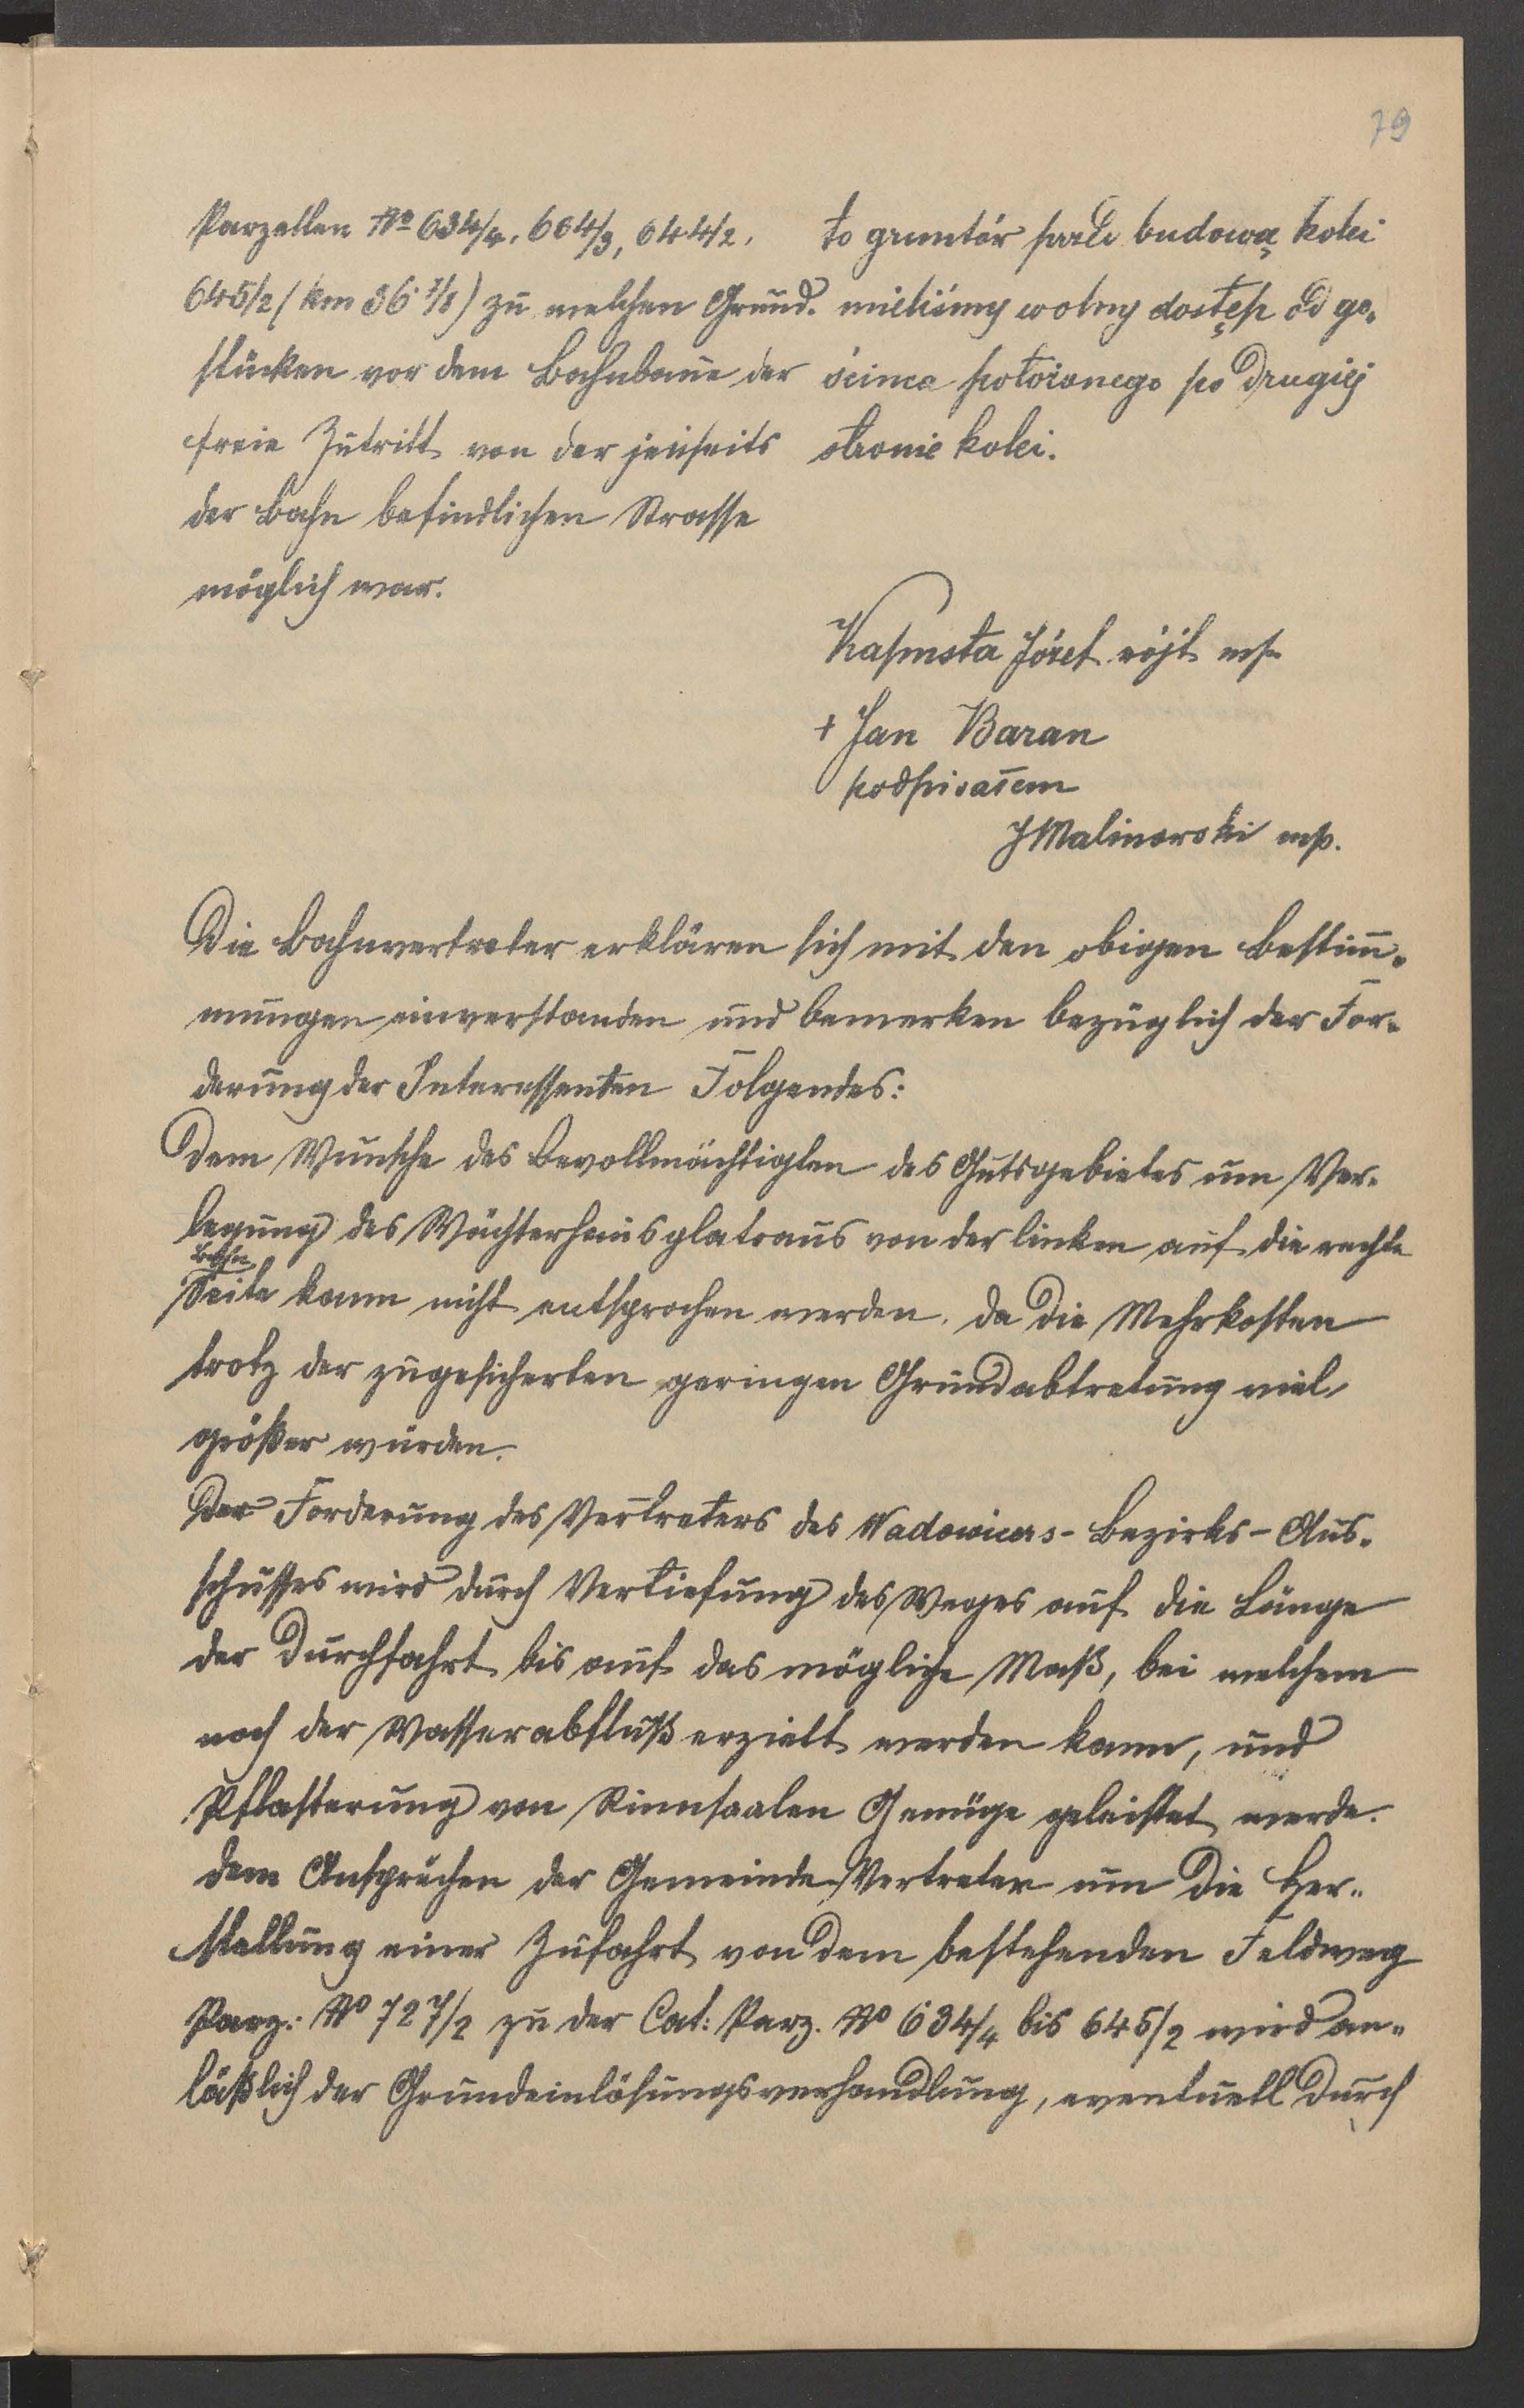 79
Parzellen No 634/4, 664/3, 644/2,
645/2 (km 36 7/8) zu welchen Grund-
stücken vor dem Bahnbaue der
freie Zutritt von der jenseits
der Bahn befindlichen Strasse
möglich war.
to gruntów przed budową kolei
mieliśmy wolny dostęp od go-
ścinca położonego po drugiej
stronie kolei.
Kapusta Józef wójt mp
+ Jan Baran
podpisałem
J Malinowski mp.
Die Bahnvertreter erklären sich mit den obigen Bestim̄-
mungen einverstanden und bemerken bezüglich der For-
derung der Interessenten Folgendes:
Dem Wunsche des Bevollmächtigten des Gutsgebietes um Ver-
legung des Wächterhausplateaus von der linken auf die rechte
Bahn
Seite kann nicht entsprochen werden, da die Mehrkosten
trotz der zugesicherten geringen Grundabtretung viel
größer würden.
Der Forderung des Vertreters des Wadowicers-Bezirks-Aus-
schusses wird durch Vertiefung des Weges auf die Länge
der Durchfahrt bis auf das mögliche Maß, bei welchem
noch der Wasserabfluß erzielt werden kann, und
Pflasterung von Rinnsaalen Genüge geleistet werde.
dem Ansprüchen der Gemeinde-Vertreter um die Her-
stellung einer Zufahrt von dem bestehenden Feldweg
Parz: No 727/2 zu der Cat: Parz. No 634/4 bis 645/2 wird an-
läßlich der Grundeinlösungsverhandlung, eventuell durch